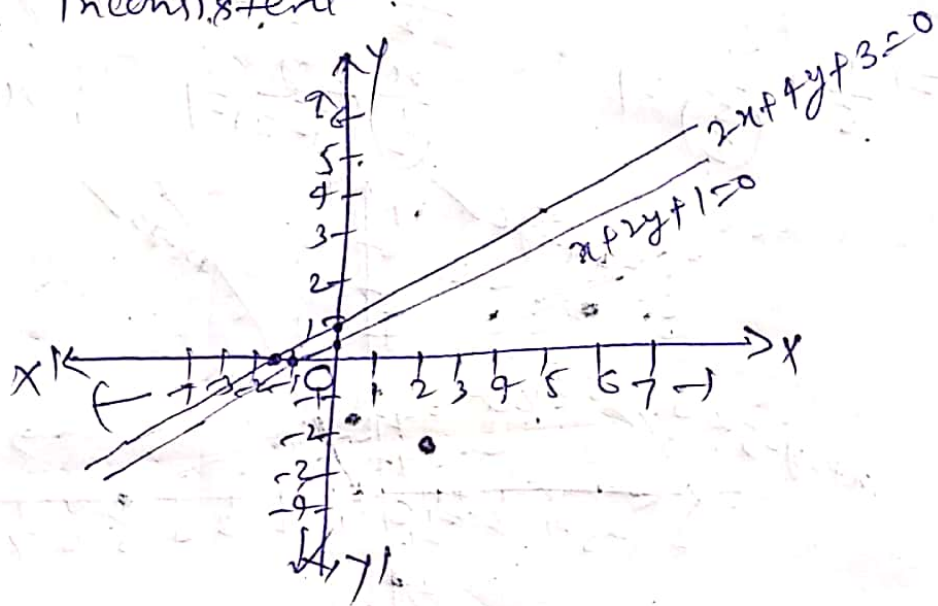 Inconsistent
Y
5
4
3
2
1
2x+4y+3=0
x+2y+1=0
X'
X
O
1 2 3 4 5 6 7
-2
y'